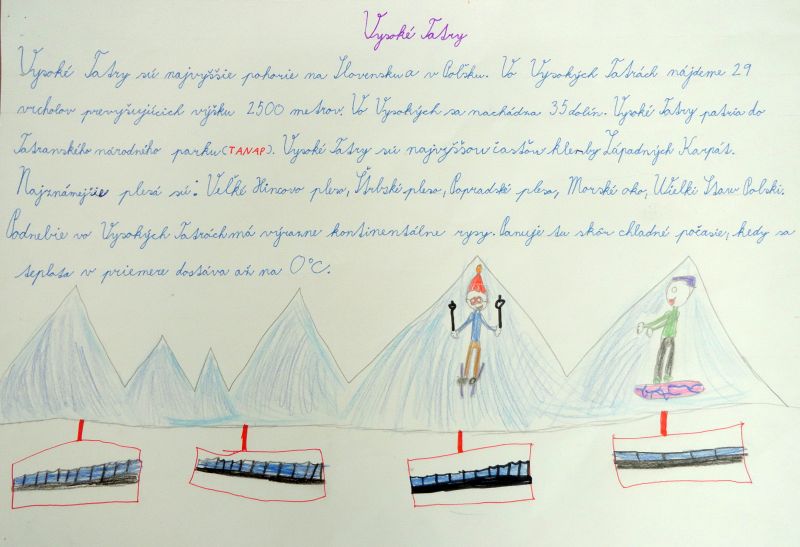 Vysoké Tatry
Vysoké Tatry sú najvyššie pohorie na Slovensku a v Poľsku. Vo Vysokých Tatrách nájdeme 29
vrcholov prevyšujúcich výšku 2500 metrov. Vo Vysokých sa nachádza 35 dolín. Vysoké Tatry patria do
Tatranského národného parku (TANAP). Vysoké Tatry sú najvyššou časťou klenby Západných Karpát.
Najznámejšie plesá sú: Veľké Hincovo pleso, Štrbské pleso, Popradské pleso, Morské oko, Wielki Staw Polski.
Podnebie vo Vysokých Tatrách má výrazne kontinentálne rysy. Panuje tu skôr chladné počasie, kedy sa
teplota v priemere dostáva až na 0°C.